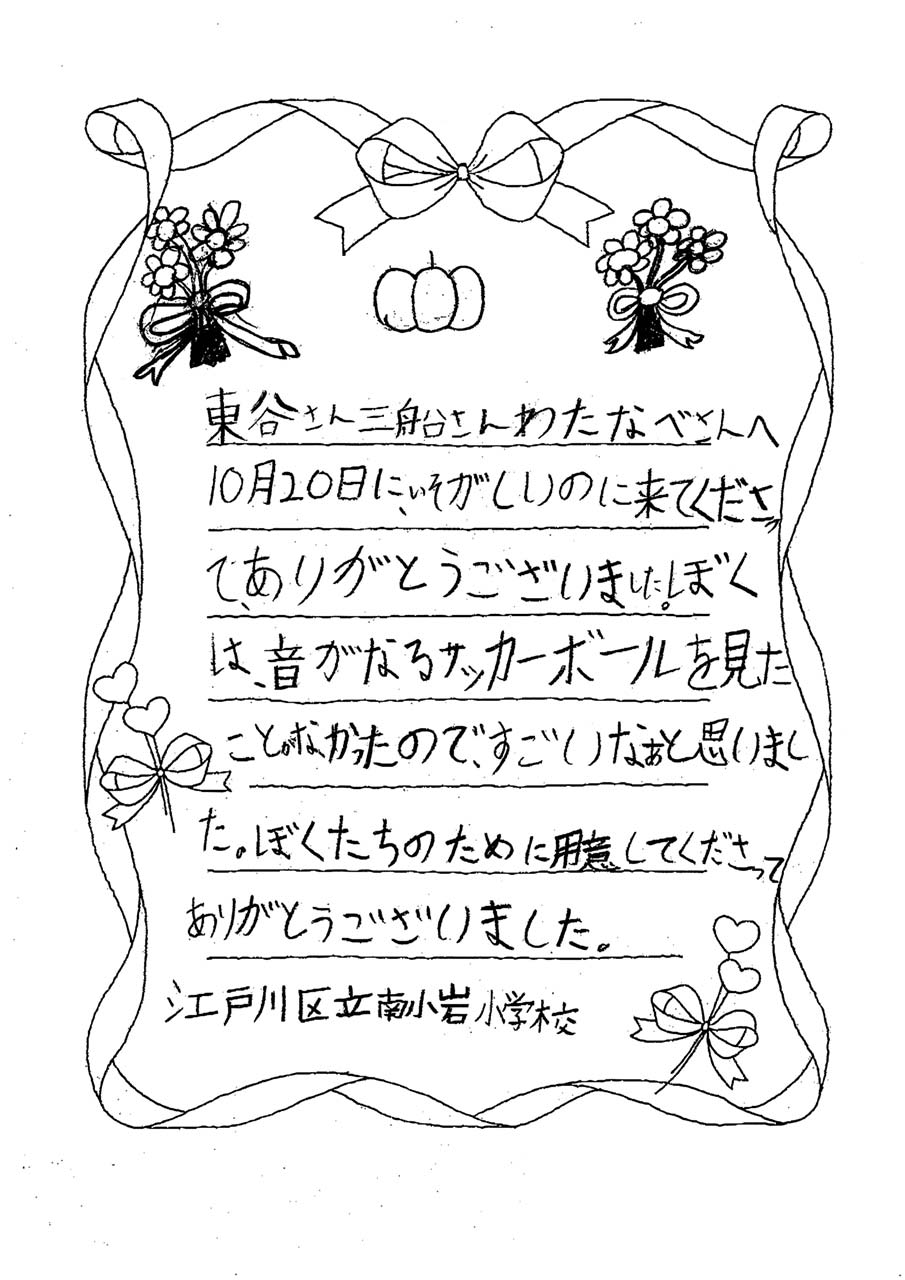 東谷さん三船さんわたなべさんへ
10月20日に、いそがしいのに来てくださっ
て、ありがとうございました。ぼく
は、音がなるサッカーボールを見た
ことがなかったので、すごいなぁと思いまし
た。ぼくたちのために用意してくださって
ありがとうございました。
江戸川区立南小岩小学校